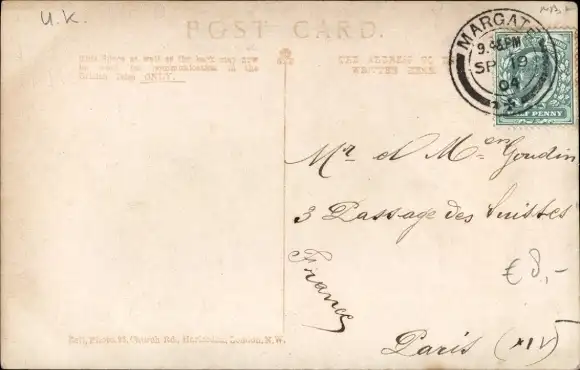 U.K.
POST CARD.
This Space as well as the back may now
be used for communication in the
British Isles ONLY.
THE ADDRESS TO BE
WRITTEN HERE
MARGATE
9.45 PM
SP 19
04
HALF PENNY
Mr et Men Goudin
3 Passage des Suisses
France
€ 8,-
Paris (XIV)
Photo 92, Church Rd., London, N.W.